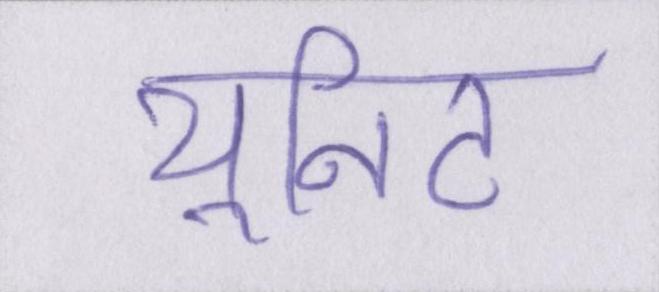 यूनिट